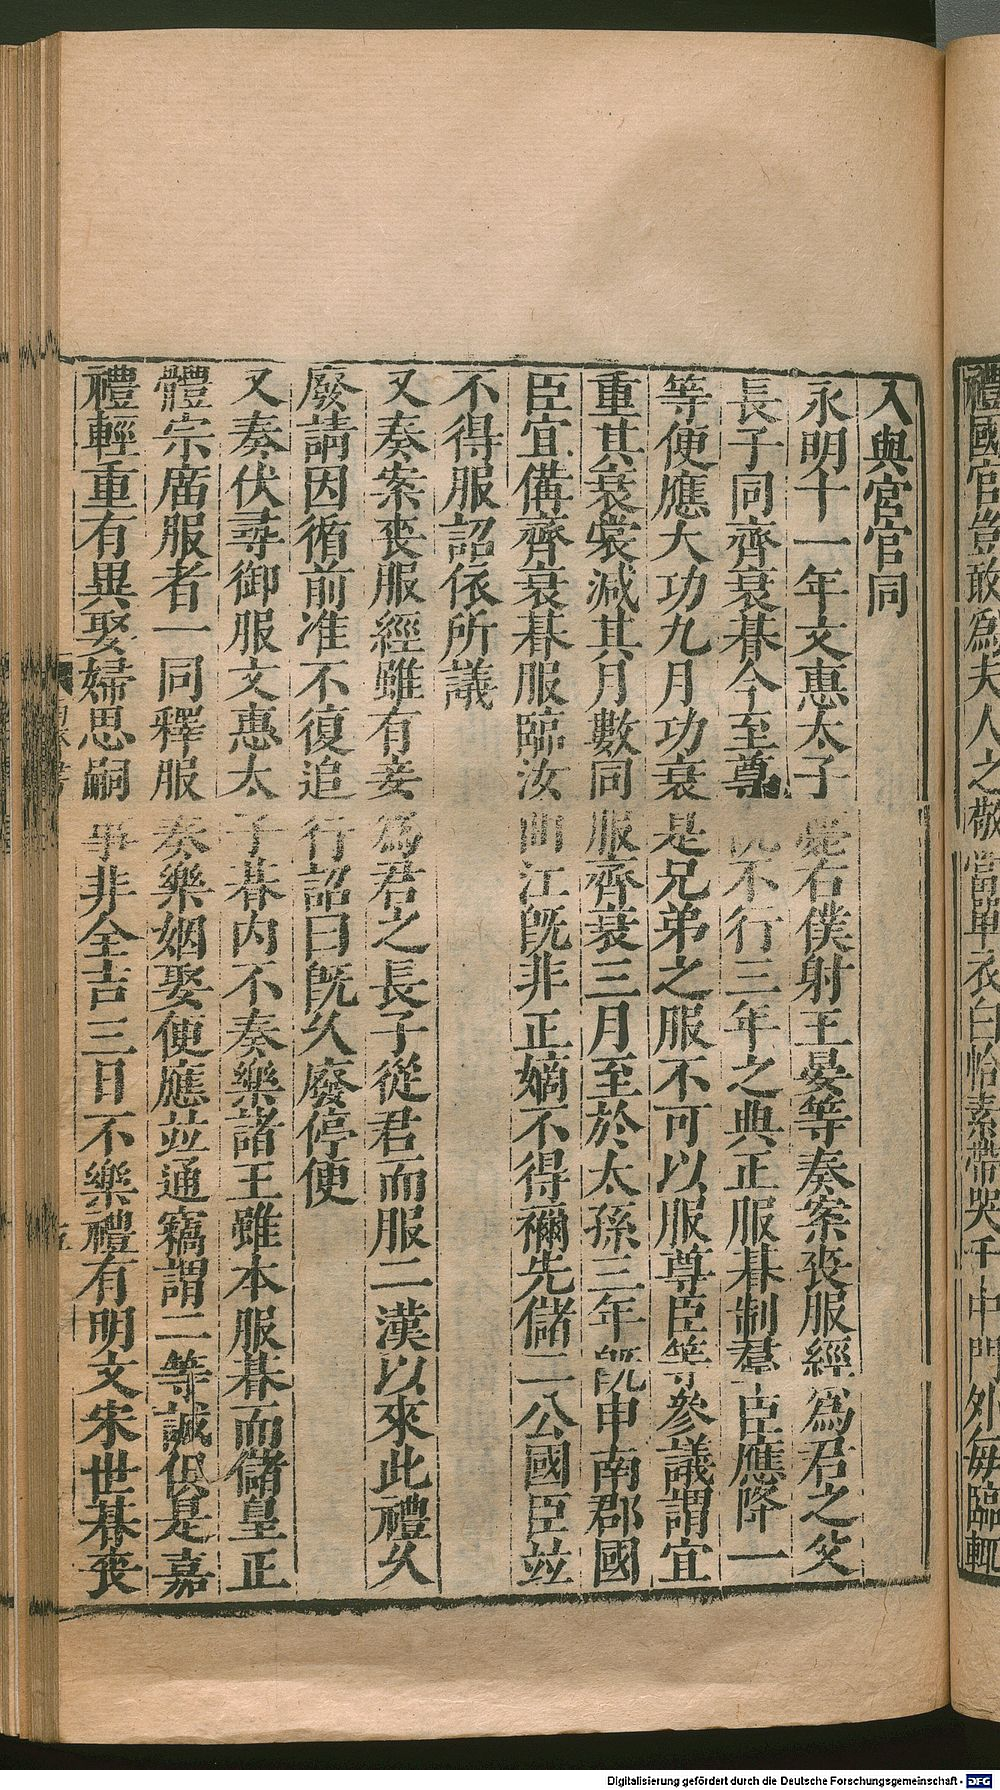 禮國官豈敢爲夫人之敬當單衣白帢素帶哭于中門外每臨輒
入與宮官同
永明十一年文惠太子薨右僕射王晏等奏案喪服經爲君之父
長子同齊衰朞今至尊既不行三年之典正服朞制羣臣應降一
等便應大功九月功衰是兄弟之服不可以服尊臣等參議謂宜
重其衰裳減其月數同服齊衰三月至於太孫三年既申南郡國
臣宜備齊衰朞服臨汝曲江既非正嫡不得禰先儲二公國臣並
不得服詔依所議
又奏案喪服經雖有妾爲君之長子從君而服二漢以來此禮久
廢請因循前准不復追行詔曰既久廢停便
又奏伏尋御服文惠太子朞内不奏樂諸王雖本服朞而儲皇正
體宗廟服者一同釋服奏樂姻娶便應並通竊謂二等誠俱是嘉
禮輕重有異娶婦思嗣事非全吉三日不樂禮有明文宋世朞喪
Digitalisierung gefördert durch die Deutsche Forschungsgemeinschaft - DFG